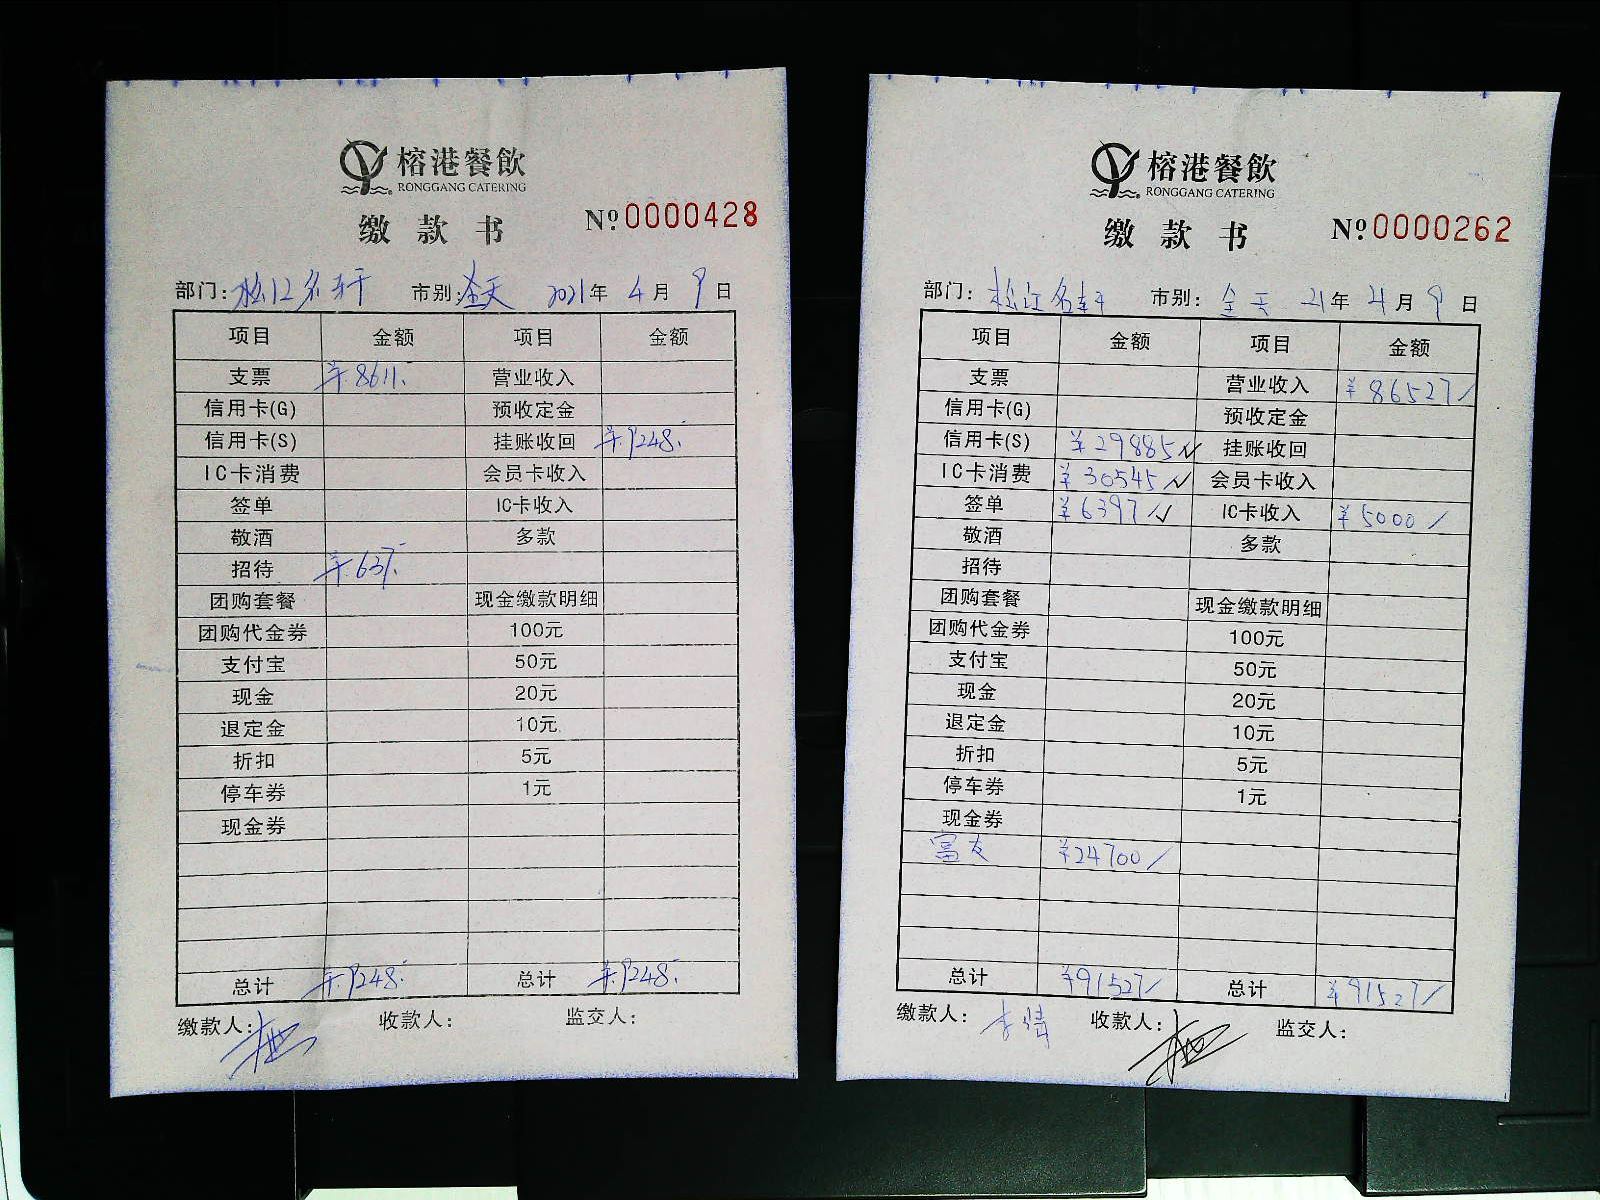 榕港餐飲
RONGGANG CATERING
缴款书 № 0000428
部门: 松江名轩 市别: 全天 2021年 4月 9日
项目 金额 项目 金额
支票 ¥8611. 营业收入
信用卡(G) 预收定金
信用卡(S) 挂账收回 ¥9248.
IC卡消费 会员卡收入
签单 IC卡收入
敬酒 多款
招待 ¥637.
团购套餐 现金缴款明细
团购代金券 100元
支付宝 50元
现金 20元
退定金 10元
折扣 5元
停车券 1元
现金券
总计 ¥9248. 总计 ¥9248.
缴款人: 收款人: 监交人:
榕港餐飲
RONGGANG CATERING
缴款书 № 0000262
部门: 松江名轩 市别: 全天 21年 4月 9日
项目 金额 项目 金额
支票 营业收入 ¥86527/
信用卡(G) 预收定金
信用卡(S) ¥29885 挂账收回
IC卡消费 ¥30545 会员卡收入
签单 ¥6397 IC卡收入 ¥5000/
敬酒 多款
招待
团购套餐 现金缴款明细
团购代金券 100元
支付宝 50元
现金 20元
退定金 10元
折扣 5元
停车券 1元
现金券
富友 ¥24700/
总计 ¥91527/ 总计 ¥91527/
缴款人: 收款人: 监交人: